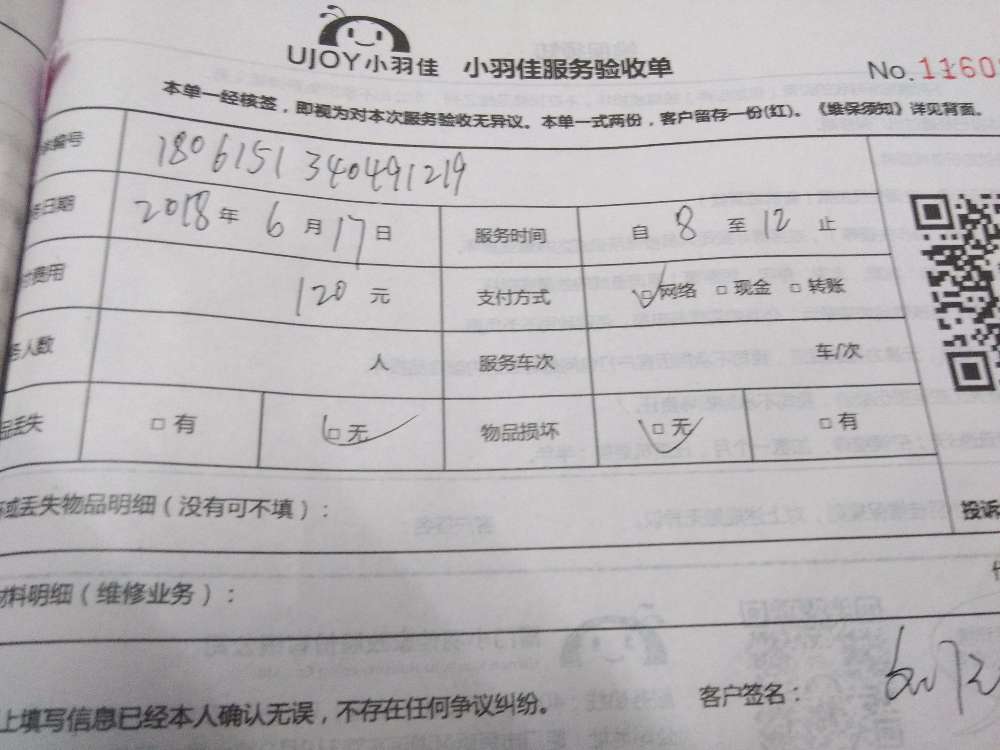 UJOY小羽佳 小羽佳服务验收单 No.1160
本单一经核签，即视为对本次服务验收无异议。本单一式两份，客户留存一份(红)。《维保须知》详见背面。
编号 1806151340491219
日期 2018年6月17日 服务时间 自8至12止
费用 120元 支付方式 □网络 □现金 □转账
人数 人 服务车次 车/次
品丢失 □有 □无 物品损坏 □无 □有
或丢失物品明细（没有可不填）： 投诉
材料明细（维修业务）：
客户签名：
上填写信息已经本人确认无误，不存在任何争议纠纷。